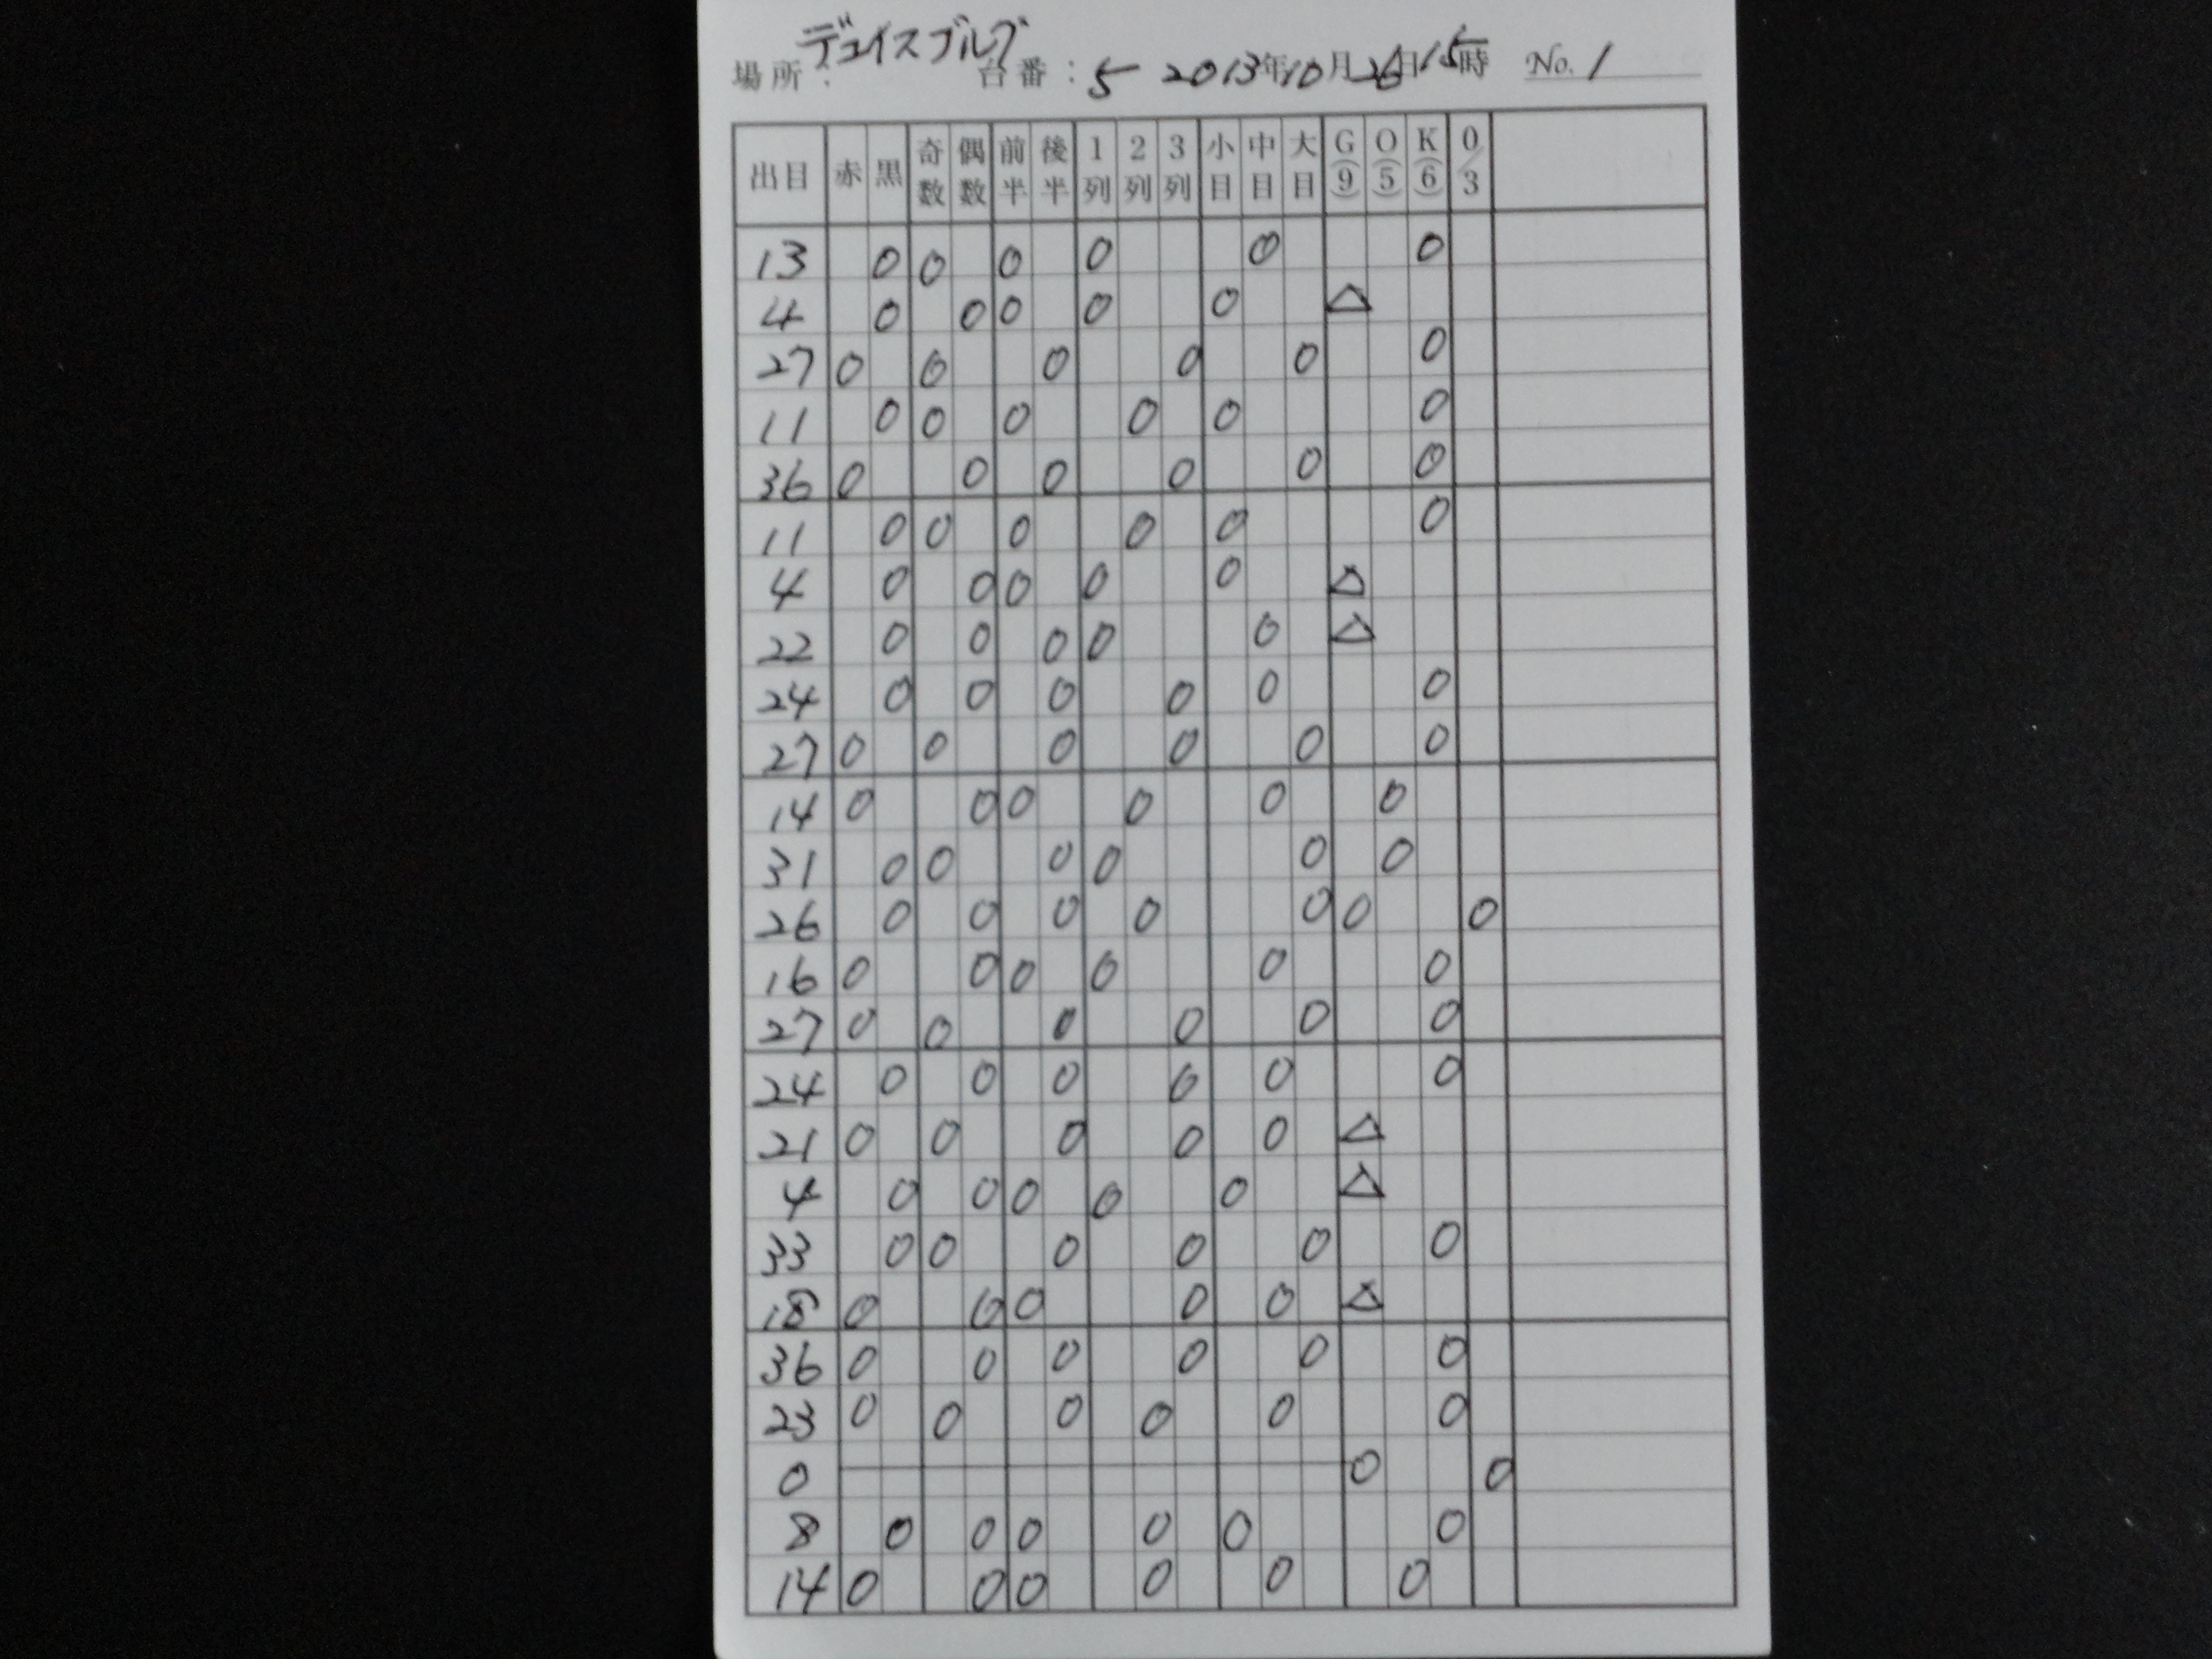 デュイスブルグ
場所： 台番：5 2013年10月26日15時 No. 1
出目 赤 黒 奇数 偶数 前半 後半 1列 2列 3列 小目 中目 大目 G(9) O(5) K(6) 0/3
13 0 0 0 0 0 0
4 0 0 0 0 0 △
27 0 0 0 0 0 0
11 0 0 0 0 0 0
36 0 0 0 0 0 0
11 0 0 0 0 0 0
4 0 0 0 0 0 △
22 0 0 0 0 0 △
24 0 0 0 0 0 0
27 0 0 0 0 0 0
14 0 0 0 0 0 0
31 0 0 0 0 0 0
26 0 0 0 0 0 0 0
16 0 0 0 0 0 0
27 0 0 0 0 0 0
24 0 0 0 0 0 0
21 0 0 0 0 0 △
4 0 0 0 0 0 △
33 0 0 0 0 0 0
18 0 0 0 0 0 △
36 0 0 0 0 0 0
23 0 0 0 0 0 0
0 0 0
8 0 0 0 0 0 0
14 0 0 0 0 0 0